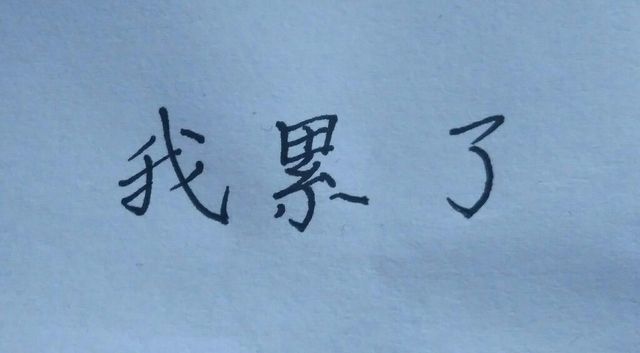 我累了